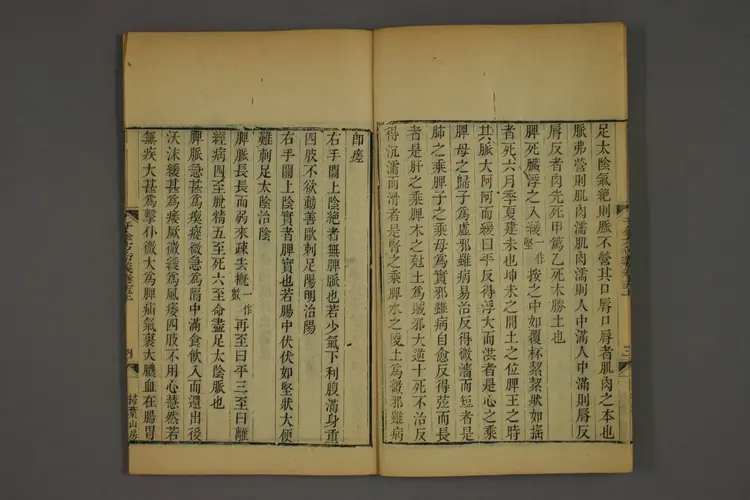 足太陰氣絶則脈不營其口唇口唇者肌肉之本也
脈弗營則肌肉濡肌肉濡則人中滿人中滿則唇反
唇反者肉先死甲篤乙死木勝土也
脾死臟浮之大緩一作堅按之中如覆杯絜絜狀如搖
者死六月季夏建未也坤未之間土之位脾王之時
其脈大阿阿而緩曰平反得浮大而洪者是心之乘
脾母之歸子爲虛邪雖病易治反得微濇而短者是
肺之乘脾子之乘母爲實邪雖病自愈反得弦而長
者是肝之乘脾木之尅土爲賊邪大逆十死不治反
得沉濡而滑者是腎之乘脾水之陵土爲微邪雖病
即瘥
右手關上陰絶者無脾脈也若少氣下利腹滿身重
四肢不欲動善歐刺足陽明治陽
右手關上陰實者脾實也若腸中伏伏如堅狀大便
難刺足太陰治陰
脾脈長長而弱來疎去概一作數再至曰平三至曰離
經病四至脫精五至死六至命盡足太陰脈也
脾脈急甚爲瘈瘲微急爲膈中滿食飲入而還出後
沃沫緩甚爲痿厥微緩爲風痿四肢不用心慧然若
無疾大甚爲擊仆微大爲脾疝氣裹大膿血在腸胃
掃葉山房